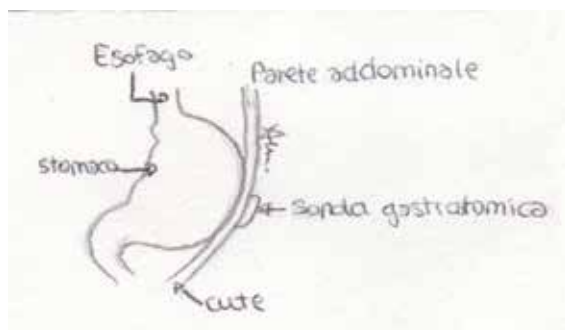 Esofago
Parete addominale
stomaco
Sonda gastratomica
cute